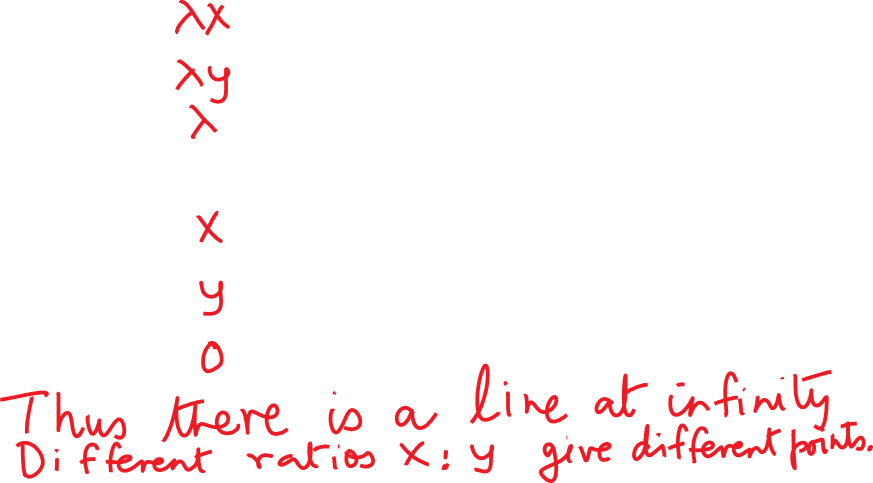 λx
λy
λ
x
y
0
Thus there is a line at infinity
Different ratios x : y give different points.